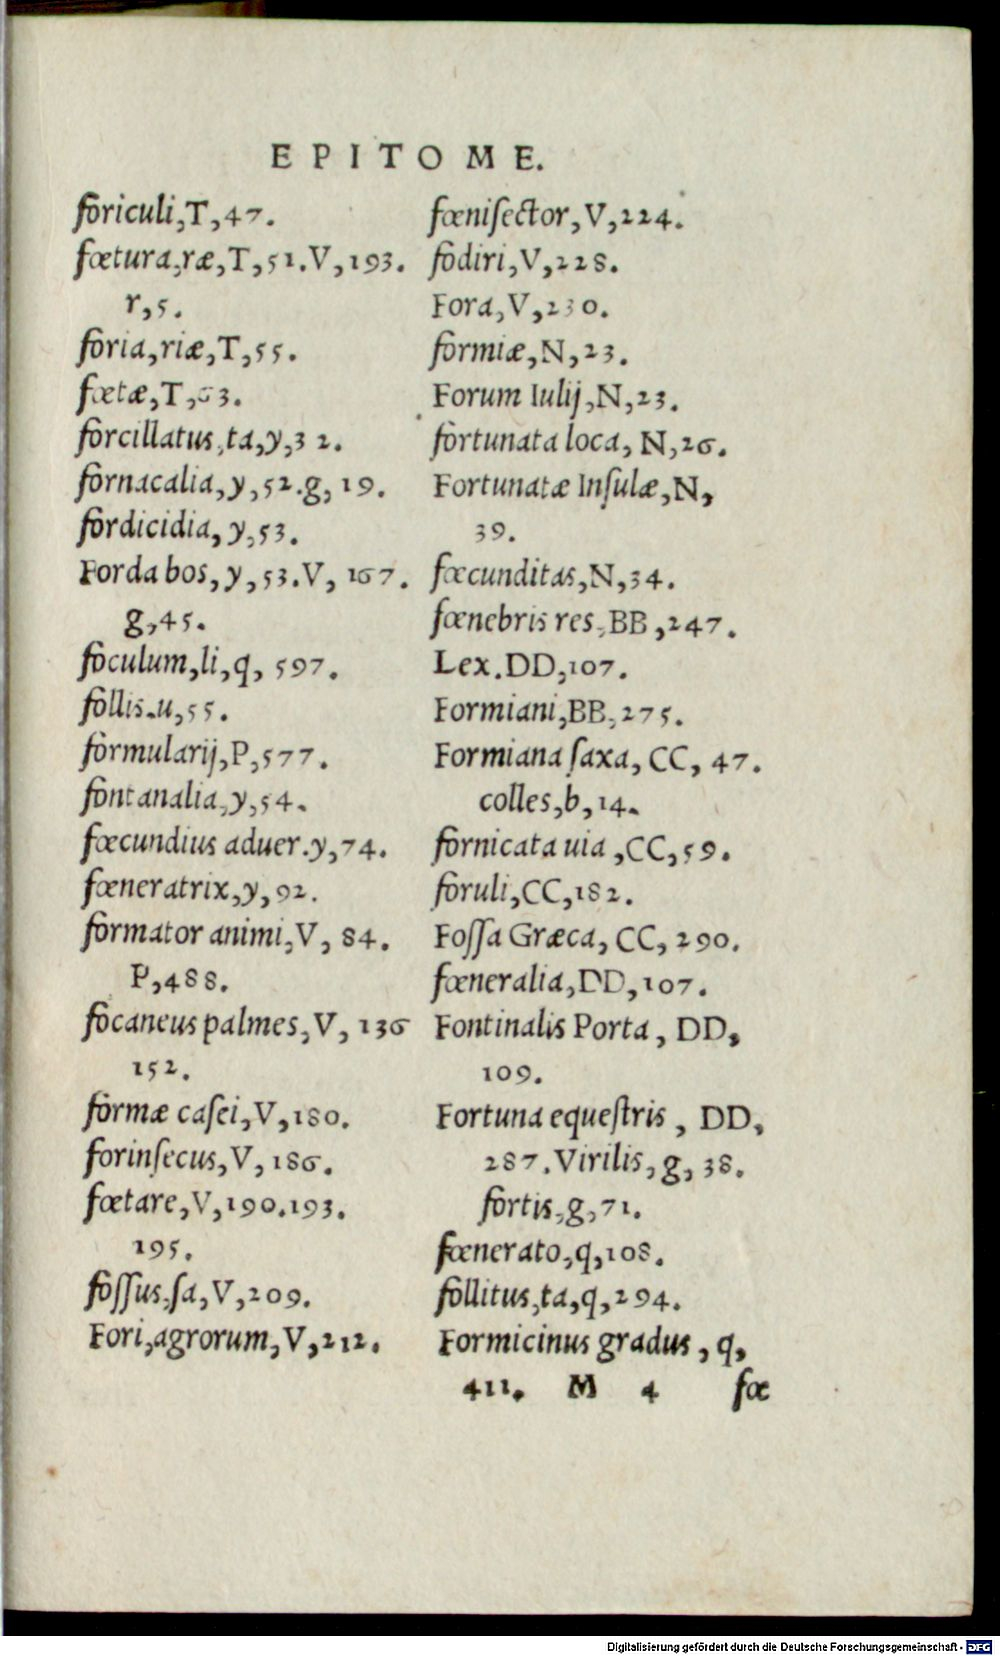 EPITOME.
foriculi,T,47.
fœtura,ræ,T,51.V,193.
r,5.
foria,riæ,T,55.
fœtæ,T,63.
forcillatus,ta,y,32.
fornacalia,y,52.g,19.
fordicidia,y,53.
Forda bos,y,53.V,167.
g,45.
foculum,li,q,597.
follis.u,55.
formularij,P,577.
fontanalia,y,54.
fœcundius aduer.y,74.
fœneratrix,y,92.
formator animi,V,84.
P,488.
focaneus palmes,V,136
152.
formæ caſei,V,180.
forinſecus,V,186.
fœtare,V,190.193.
195.
foſſus,ſa,V,209.
Fori,agrorum,V,212.
fœniſector,V,224.
fodiri,V,228.
Fora,V,230.
formiæ,N,23.
Forum Iulij,N,23.
fortunata loca,N,26.
Fortunatæ Inſulæ,N,
39.
fœcunditas,N,34.
fœnebris res,BB,247.
Lex.DD,107.
Formiani,BB,275.
Formiana ſaxa,CC,47.
colles,b,14.
fornicata uia,CC,59.
foruli,CC,182.
Foſſa Græca,CC,290.
fœneralia,DD,107.
Fontinalis Porta,DD,
109.
Fortuna equeſtris,DD,
287.Virilis,g,38.
fortis,g,71.
fœnerato,q,108.
follitus,ta,q,294.
Formicinus gradus,q,
411. M 4 fœ
Digitalisierung gefördert durch die Deutsche Forschungsgemeinschaft - DFG